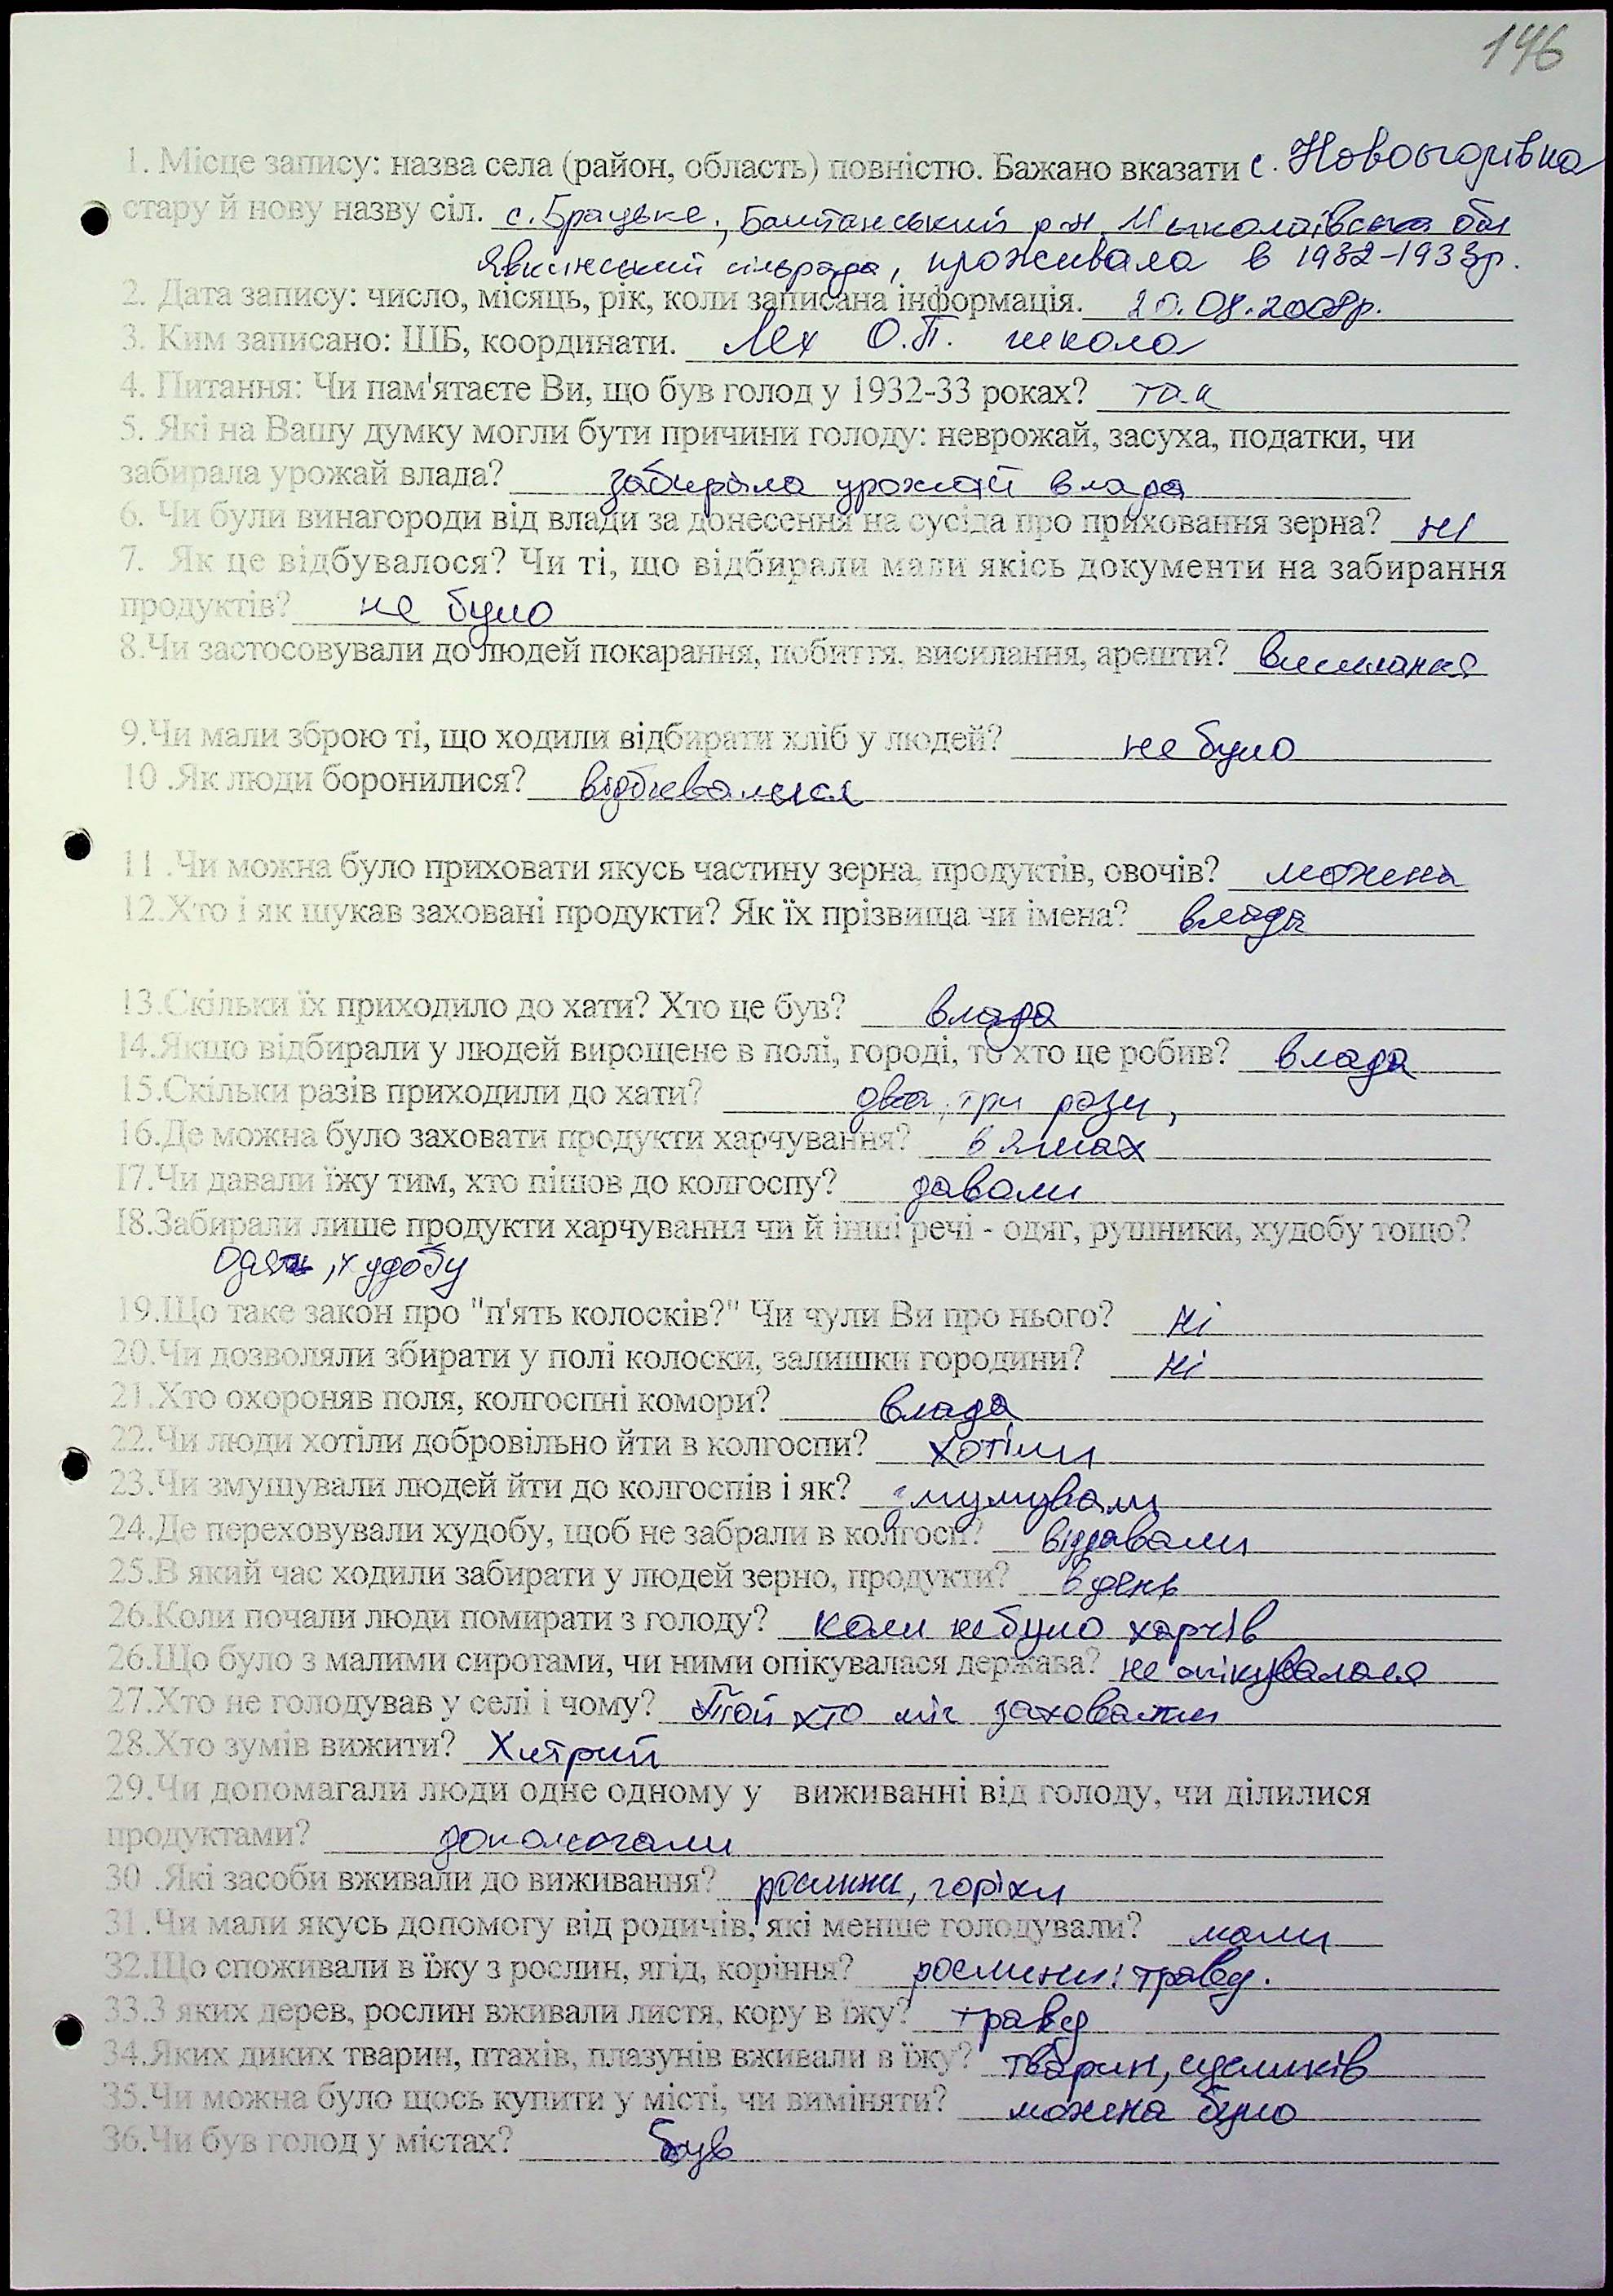 146
1. Місце запису: назва села (район, область) повністю. Бажано вказати с. Новоєгорівка
стару й нову назву сіл. с. Брацьке, Баштанський р-н, Миколаївська обл
Явкинський сільрада, проживала в 1932-1933р.
2. Дата запису: число, місяць, рік, коли записана інформація. 20.08.2008р.
3. Ким записано: ШБ, координати. Лех О.П. школа
4. Питання: Чи пам'ятаєте Ви, що був голод у 1932-33 роках? так
5. Які на Вашу думку могли бути причини голоду: неврожай, засуха, податки, чи
забирала урожай влада? забирала урожай влада
6. Чи були винагороди від влади за донесення на сусіда про приховання зерна? ні
7. Як це відбувалося? Чи ті, що відбирали мали якісь документи на забирання
продуктів? не було
8.Чи застосовували до людей покарання, побиття, висилання, арешти? висилання
9.Чи мали зброю ті, що ходили відбирати хліб у людей? не було
10 .Як люди боронилися? відбивалися
11 .Чи можна було приховати якусь частину зерна, продуктів, овочів? можна
12.Хто і як шукав заховані продукти? Як їх прізвища чи імена? влада
13.Скільки їх приходило до хати? Хто це був? влада
14.Якщо відбирали у людей вирощене в полі, городі, то хто це робив? влада
15.Скільки разів приходили до хати? два, три рази,
16.Де можна було заховати продукти харчування? в ямах
17.Чи давали їжу тим, хто пішов до колгоспу? давали
18.Забирали лише продукти харчування чи й інші речі - одяг, рушники, худобу тощо?
, худобу
19.Що таке закон про "п'ять колосків?" Чи чули Ви про нього? ні
20.Чи дозволяли збирати у полі колоски, залишки городини? ні
21.Хто охороняв поля, колгоспні комори? влада
22.Чи люди хотіли добровільно йти в колгоспи? хотіли
23.Чи змушували людей йти до колгоспів і як? змушували
24.Де переховували худобу, щоб не забрали в колгосп? віддавали
25.В який час ходили забирати у людей зерно, продукти? в день
26.Коли почали люди помирати з голоду? коли не було харчів
26.Що було з малими сиротами, чи ними опікувалася держава? не опікувалася
27.Хто не голодував у селі і чому? Той хто міг заховати
28.Хто зумів вижити? Хитрий
29.Чи допомагали люди одне одному у виживанні від голоду, чи ділилися
продуктами? допомогали
30 .Які засоби вживали до виживання? рослини, горіхи
31.Чи мали якусь допомогу від родичів, які менше голодували? мали
32.Що споживали в їжу з рослин, ягід, коріння? рослини: траву.
33.З яких дерев, рослин вживали листя, кору в їжу? траву
34.Яких диких тварин, птахів, плазунів вживали в їжу? тварин, сусликів
35.Чи можна було щось купити у місті, чи виміняти? можна було
36.Чи був голод у містах? був